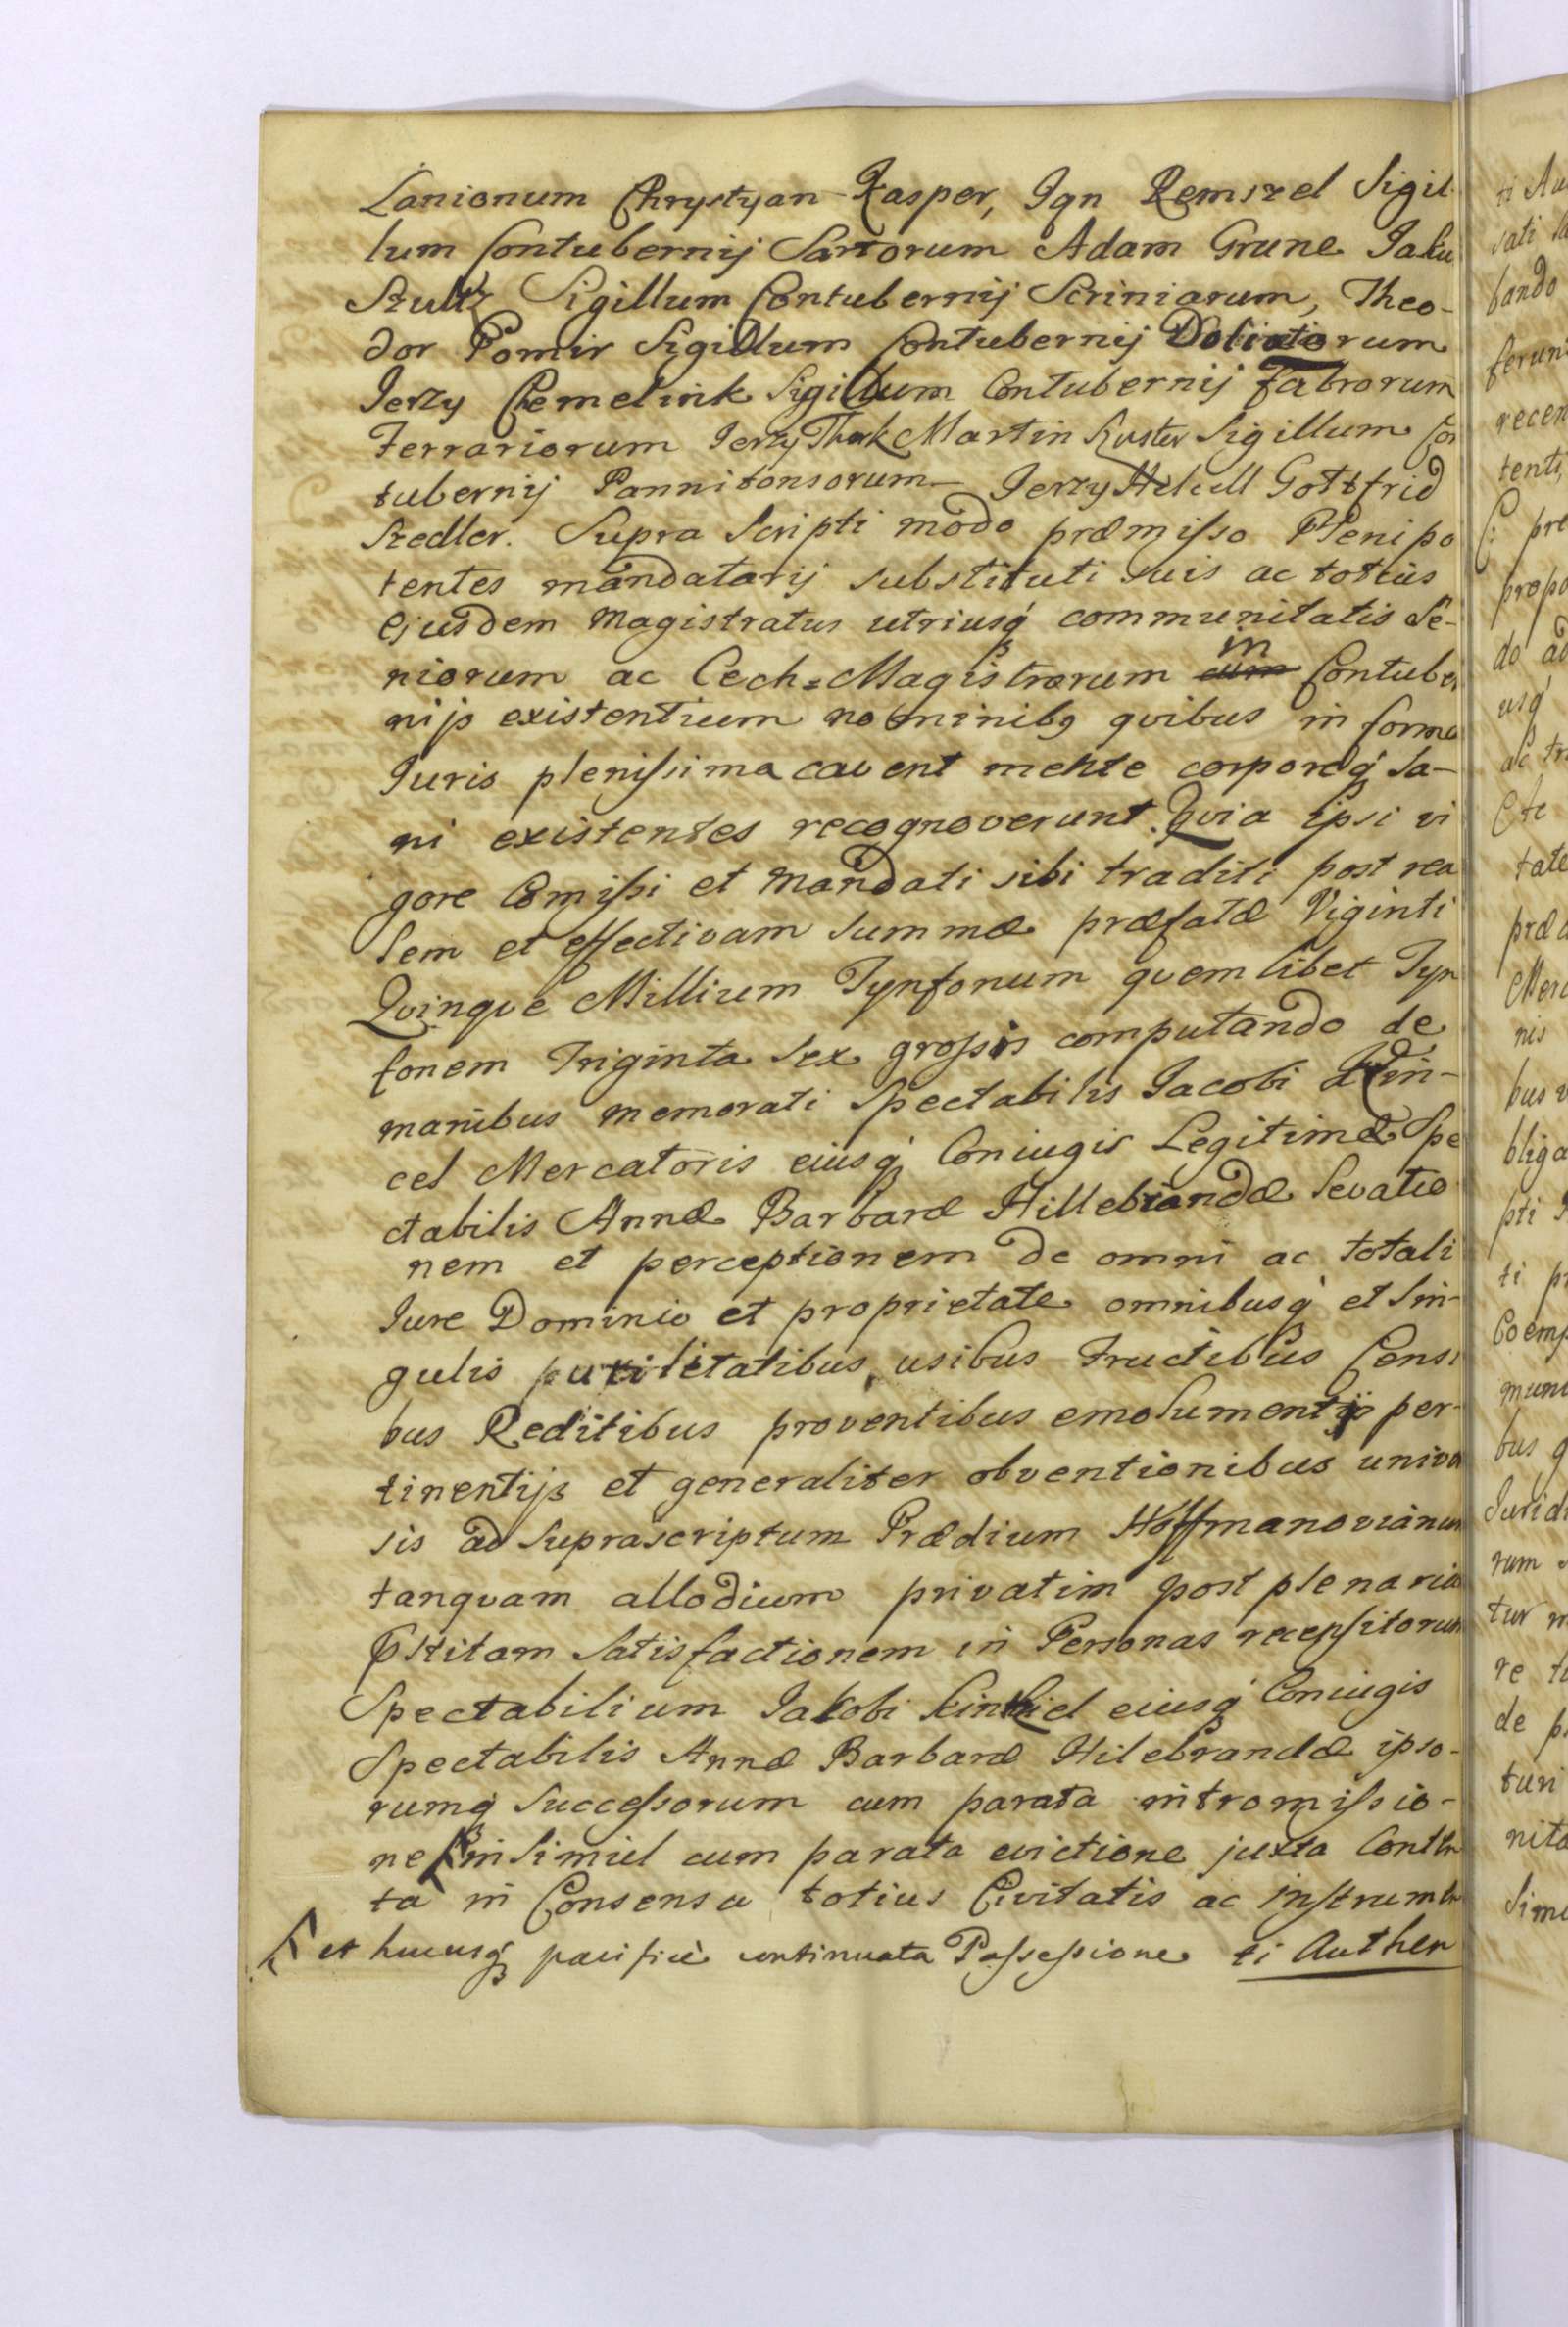 Lanionum Chrystyan Kasper, Ign Remszel Sigil
lum Contubernij Sartorum Adam Grune Jaku
Szultz Sigillum Contubernij Scriniarum, Theo-
dor Pomir Sigillum Contubernij Doliatorum
Jerzy Chemelink Sigillum Contubernij Fabrorum
Ferrariorum Jerzy Thork Martin Kuster Sigillum Con
tubernij Pannitonsorum Jerzy Gottfrid
Szedler. Supra Scripti modo præmisso Plenipo
tentes mandatarij substituti suis ac totius
Ejusdem Magistratus utriusq́ communitatis Se-
niorum ac Cech=Magistrorum in Contuber
nijs existentium nominibq quibus in forma
Juris plenissima cavent mente corporeq́ Sa-
ni existentes recognoverunt. Quia ipsi vi
gore Comissi et Mandati sibi traditi post rea
lem et effectivam summæ præfatæ Viginti
Quinque Millium Tynfonum quemlibet Tyn
fonem Triginta Sex grossis computando de
manibus memorati Spectabilis Jacobi
cel Mercatoris eiusq́ Coniugis Legitimæ Spe
ctabilis Annæ Barbaræ Hillebrandæ levatio
nem et perceptionem de omni ac totali
Jure Dominio et proprietate omnibusq́ et Sin-
gulis utilitatibus usibus Fructibus Censi
bus Reditibus proventibus emolumentijs per-
tinentijs et generaliter obventionibus univer
sis ad Suprascriptum Prædium Hoffmanovianum
tanquam allodium privatim post plenaria
Satisfactionem in Personas recepsitorum
Spectabilium Jakobi Kinthiel eiusq́ Coniugis
Spectabilis Annæ Barbaræ Hilebrandæ ipso-
rumq́ Successorum cum parata intromissio-
ne insimul cum parata evictione juxta
ta in Consensu totius Civitatis ac instrumen
et hucusq́ pacificè continuata Possessione ti Authen
ti Au
sati
bando
ferun
recen
tenti,
pre
propo
do ad
usq́
ac tr
Cte
tate
præ
Merc
nis
bus
bliga
pti
ti
Coemp
muni
bus
Jurid
rum
tur
re
de
turi
nita
Simu